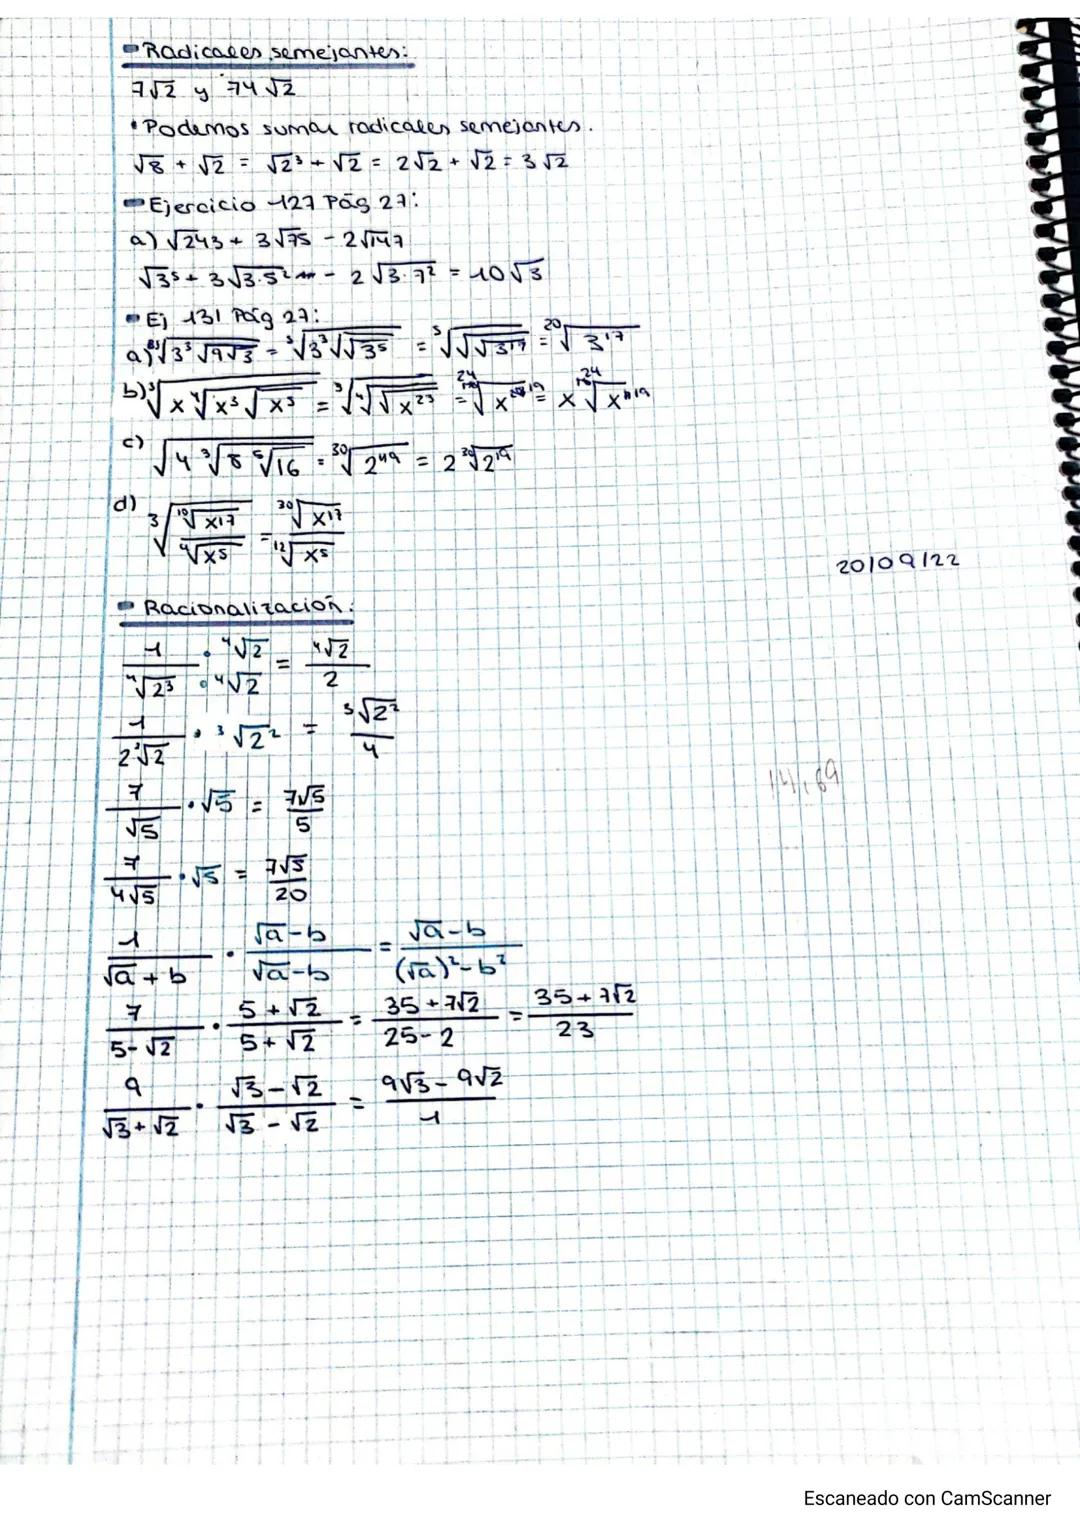 Radicales semejantes:
7√2 y 74√2
• Podemos sumar radicales semejantes.
√8 + √2 = √2³ + √2 = 2√2 + √2 = 3√2
Ejercicio 127 Pág 27:
a) √243 + 3√75 - 2√147
√3⁵ + 3√3·5² - 2√3·7² = 10√3
Ej 131 Pág 27:
a) ⁵√3³√9√3 = ⁵√3³√√3⁵ = ⁵√√√3¹⁷ = ²⁰√3¹⁷
b) ³√x⁴√x³√x⁵ = ³√⁴√√x²³ = ²⁴√x = x ²⁴√x¹⁹
c) √4 ³√8 ⁵√16 = ³⁰√2⁴⁹ = 2 ³⁰√2¹⁹
d) ³√(¹⁰√x¹⁷ / ⁴√x⁵) = ³⁰√x¹⁷ / ¹²√x⁵
20/09/22
Racionalización:
1/⁴√2³ · ⁴√2/⁴√2 = ⁴√2/2
1/2³√2 · ³√2² = ³√2²/4
7/√5 · √5 = 7√5/5
7/4√5 · √5 = 7√5/20
1/(√a + b) · (√a - b)/(√a - b) = (√a - b)/((√a)² - b²)
7/(5 - √2) · (5 + √2)/(5 + √2) = (35 + 7√2)/(25 - 2) = (35 + 7√2)/23
9/(√3 + √2) · (√3 - √2)/(√3 - √2) = (9√3 - 9√2)/1
Escaneado con CamScanner